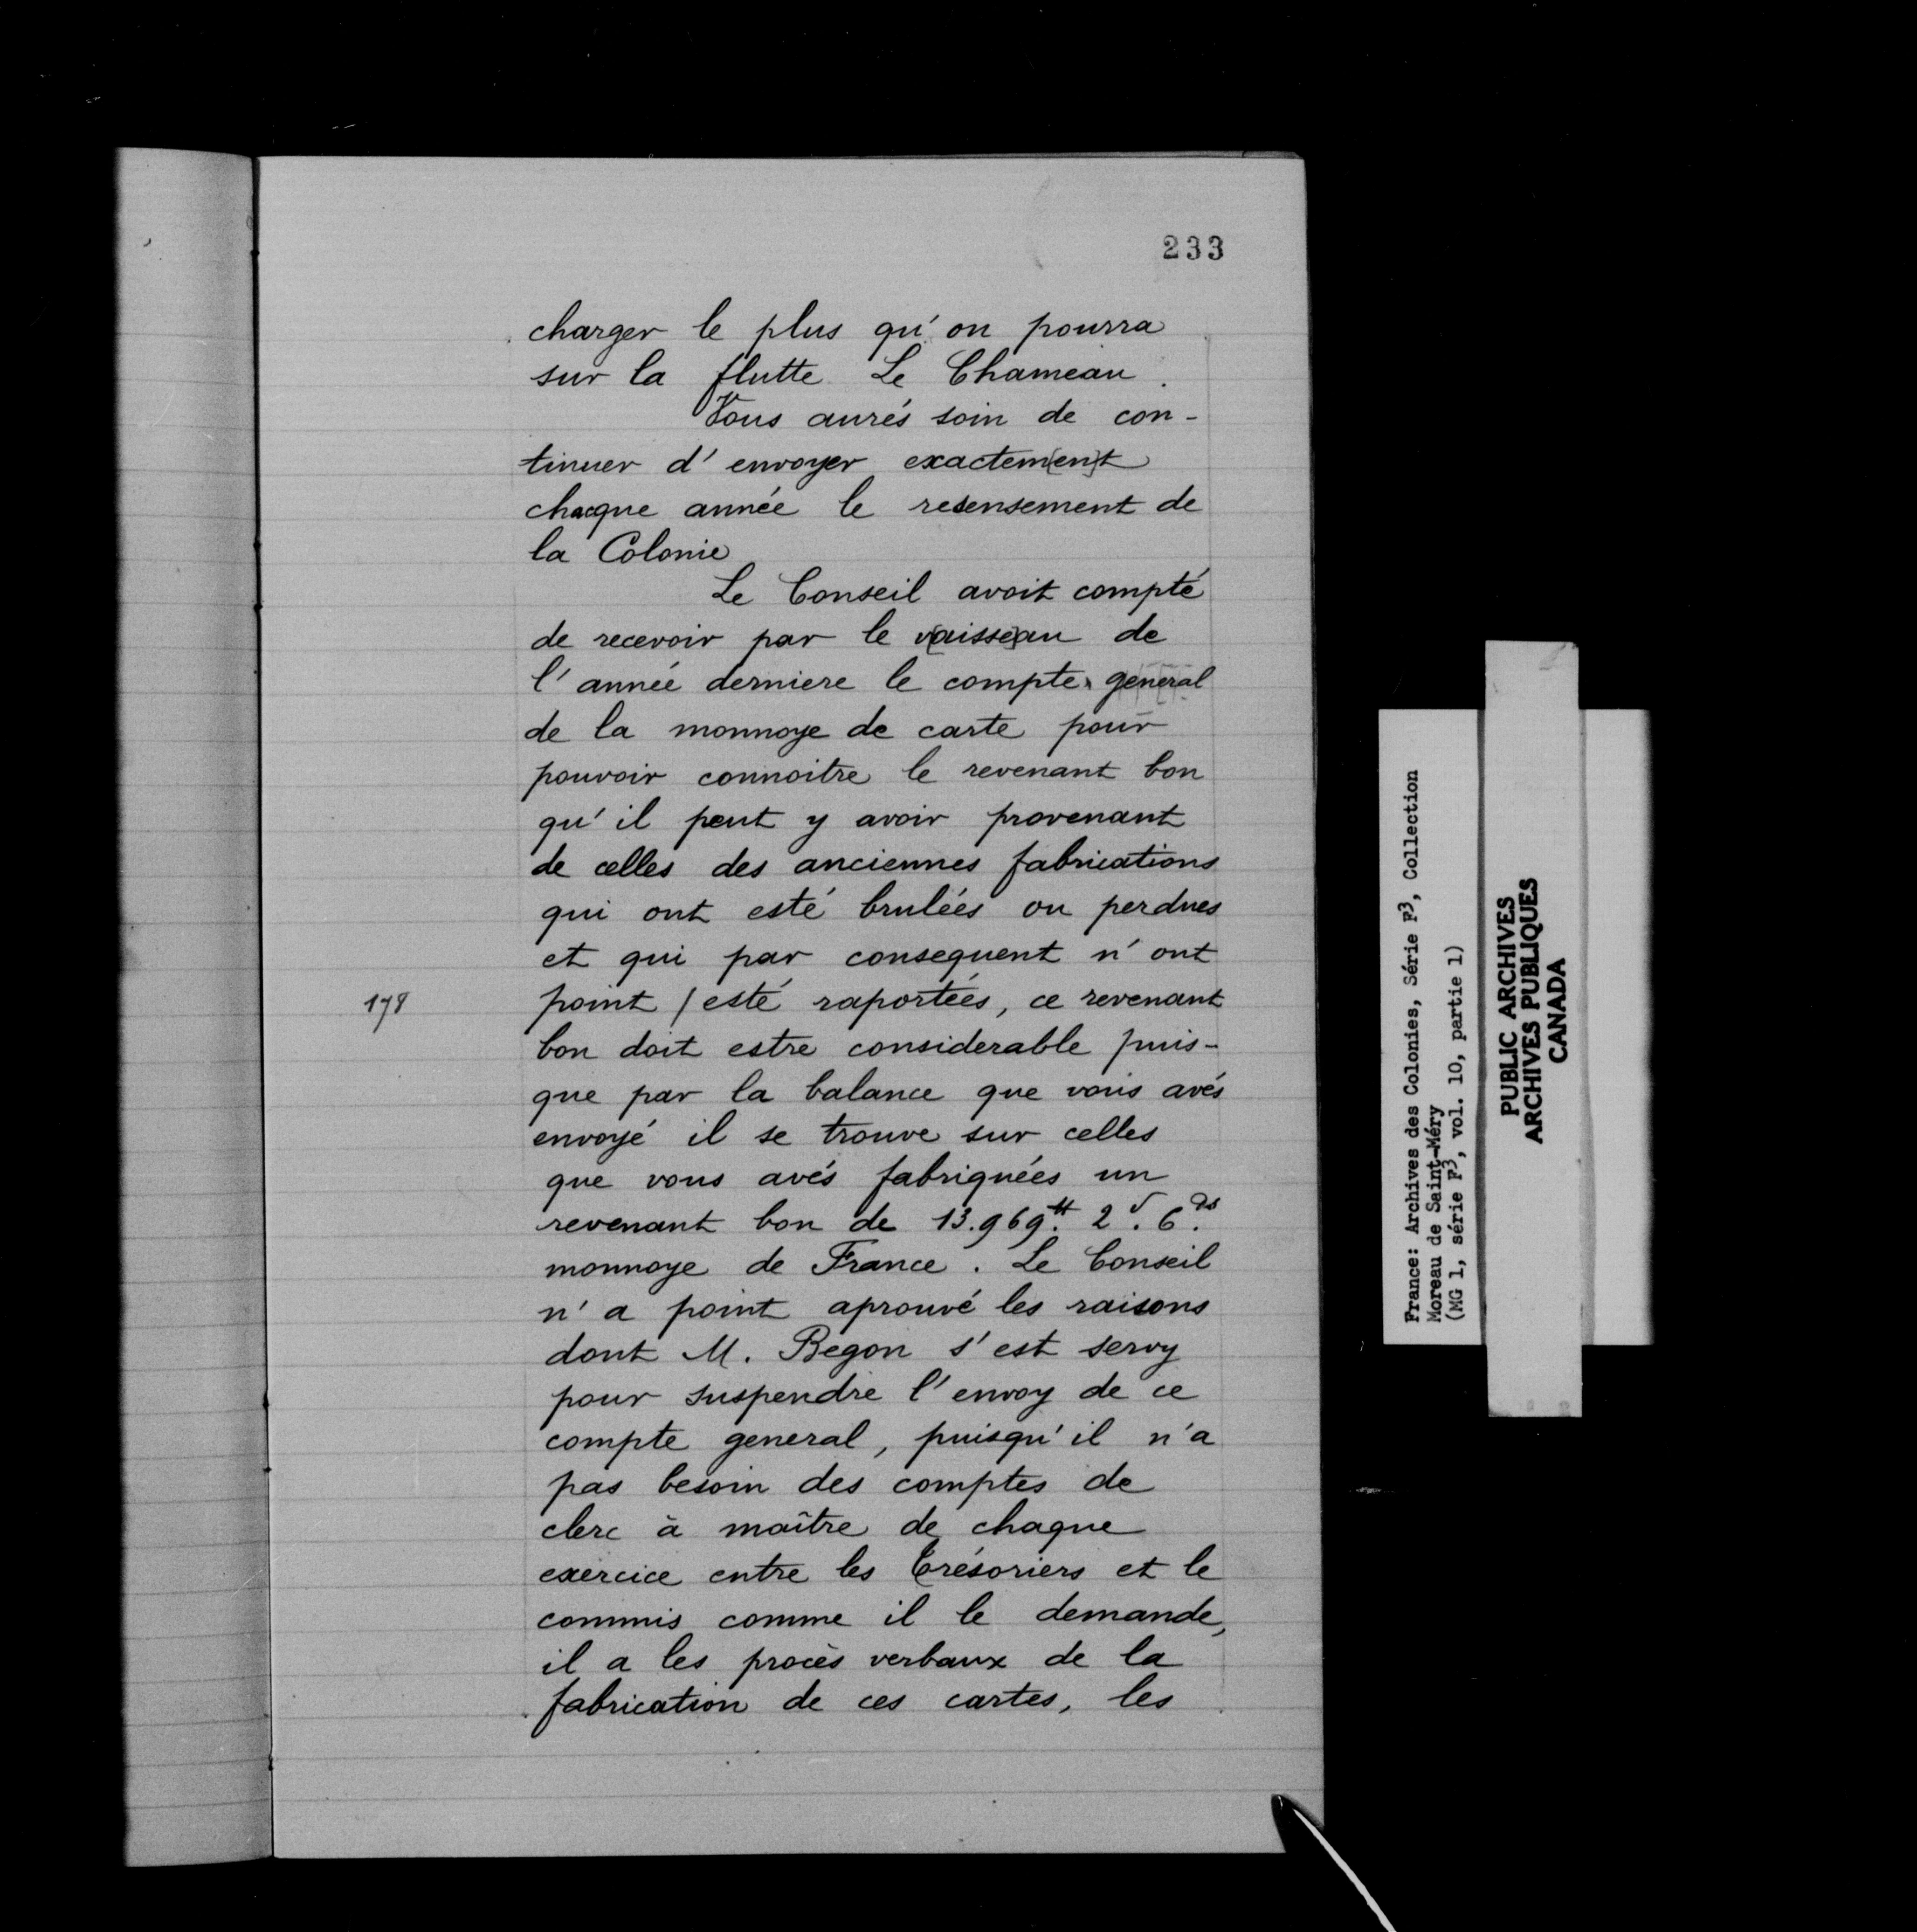 233
charger le plus qu'on pourra
sur la flutte Le Chameau.
Vous aurés soin de con-
tinuer d'envoyer exactem[en]t
chacque année le resensement de
la Colonie
Le Conseil avoit compté
de recevoir par le v[aisse]au de
l'année derniere le compte general
de la monnoye de carte pour
pouvoir connoitre le revenant bon
qu'il peut y avoir provenant
de celles des anciennes fabrications
qui ont esté brulées ou perdues
et qui par consequent n'ont
178 point / esté raportées, ce revenant
bon doit estre considerable puis-
que par la balance que vous avés
envoyé il se trouve sur celles
que vous avés fabriquées un
revenant bon de 13.969.tt 2 s. 6.ds
monnoye de France. Le Conseil
n'a point aprouvé les raisons
dont M. Begon s'est servy
pour suspendre l'envoy de ce
compte general, puisqu'il n'a
pas besoin des comptes de
clerc à maître de chaque
exercice entre les Trésoriers et le
commis comme il le demande,
il a les procès verbaux de la
fabrication de ces cartes, les
France: Archives des Colonies, Série F3, Collection
Moreau de Saint-Méry
(MG 1, série F3, vol. 10, partie 1)
PUBLIC ARCHIVES
ARCHIVES PUBLIQUES
CANADA